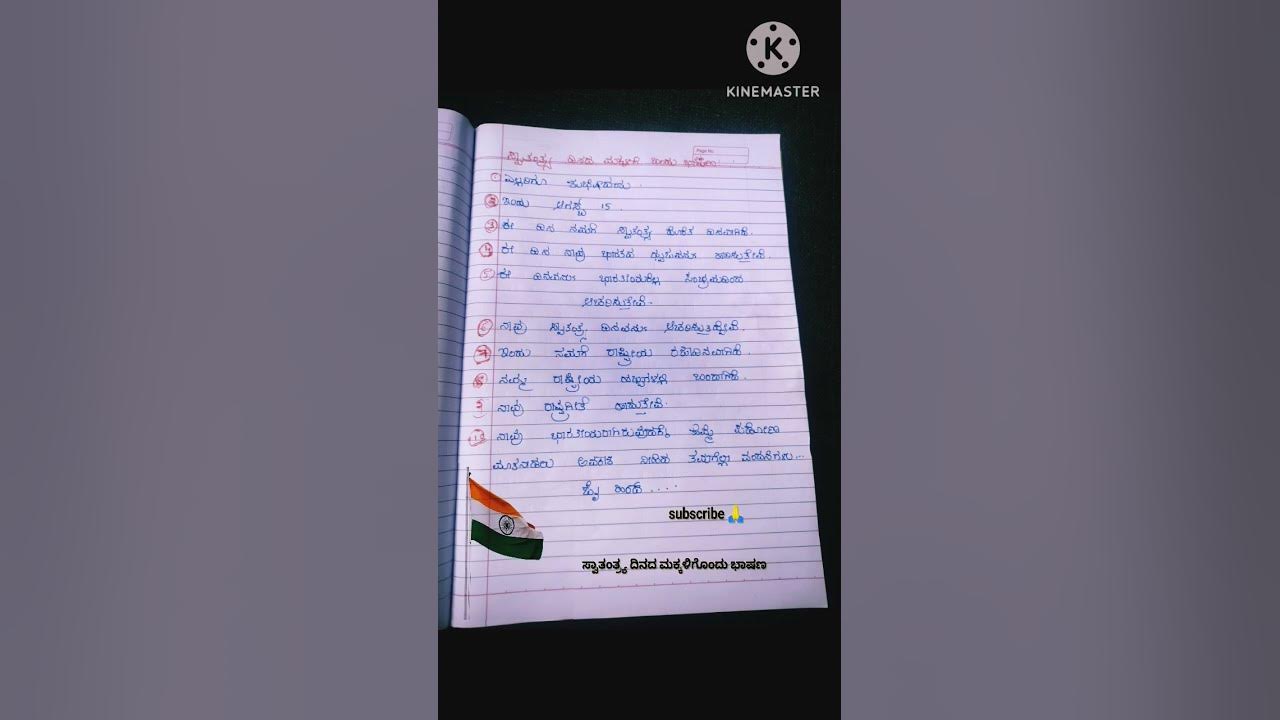 KINEMASTER
Page No.
ಸ್ವಾತಂತ್ರ್ಯ ದಿನದ ಮಕ್ಕಳಿಗೆ ಒಂದು ಭಾಷಣ
1 ಎಲ್ಲರಿಗೂ ಶುಭೋದಯ.
2 ಇಂದು ಆಗಸ್ಟ್ 15.
3 ಈ ದಿನ ನಮಗೆ ಸ್ವಾತಂತ್ರ್ಯ ದೊರೆತ ದಿನವಾಗಿದೆ.
4 ಈ ದಿನ ನಾವು ಭಾರತದ ಧ್ವಜವನ್ನು ಹಾರಿಸುತ್ತೇವೆ.
5 ಈ ದಿನವನ್ನು ಭಾರತೀಯರೆಲ್ಲ ಸಂಭ್ರಮದಿಂದ
ಆಚರಿಸುತ್ತೇವೆ.
6 ನಾವು ಸ್ವಾತಂತ್ರ್ಯ ದಿನವನ್ನು ಆಚರಿಸುತ್ತಿದ್ದೇವೆ.
7 ಇಂದು ನಮಗೆ ರಾಷ್ಟ್ರೀಯ ರಜಾದಿನವಾಗಿದೆ.
8 ನಮ್ಮ ರಾಷ್ಟ್ರೀಯ ಹಬ್ಬಗಳಲ್ಲಿ ಒಂದಾಗಿದೆ.
9 ನಾವು ರಾಷ್ಟ್ರಗೀತೆ ಹಾಡುತ್ತೇವೆ.
10 ನಾವು ಭಾರತೀಯರಾಗಿರುವುದಕ್ಕೆ ಹೆಮ್ಮೆ ಪಡೋಣ
ಮಾತನಾಡಲು ಅವಕಾಶ ನೀಡಿದ ತಮಗೆಲ್ಲಾ ವಂದನೆಗಳು...
ಜೈ ಹಿಂದ್ ....
subscribe 🙏
ಸ್ವಾತಂತ್ರ್ಯ ದಿನದ ಮಕ್ಕಳಿಗೊಂದು ಭಾಷಣ